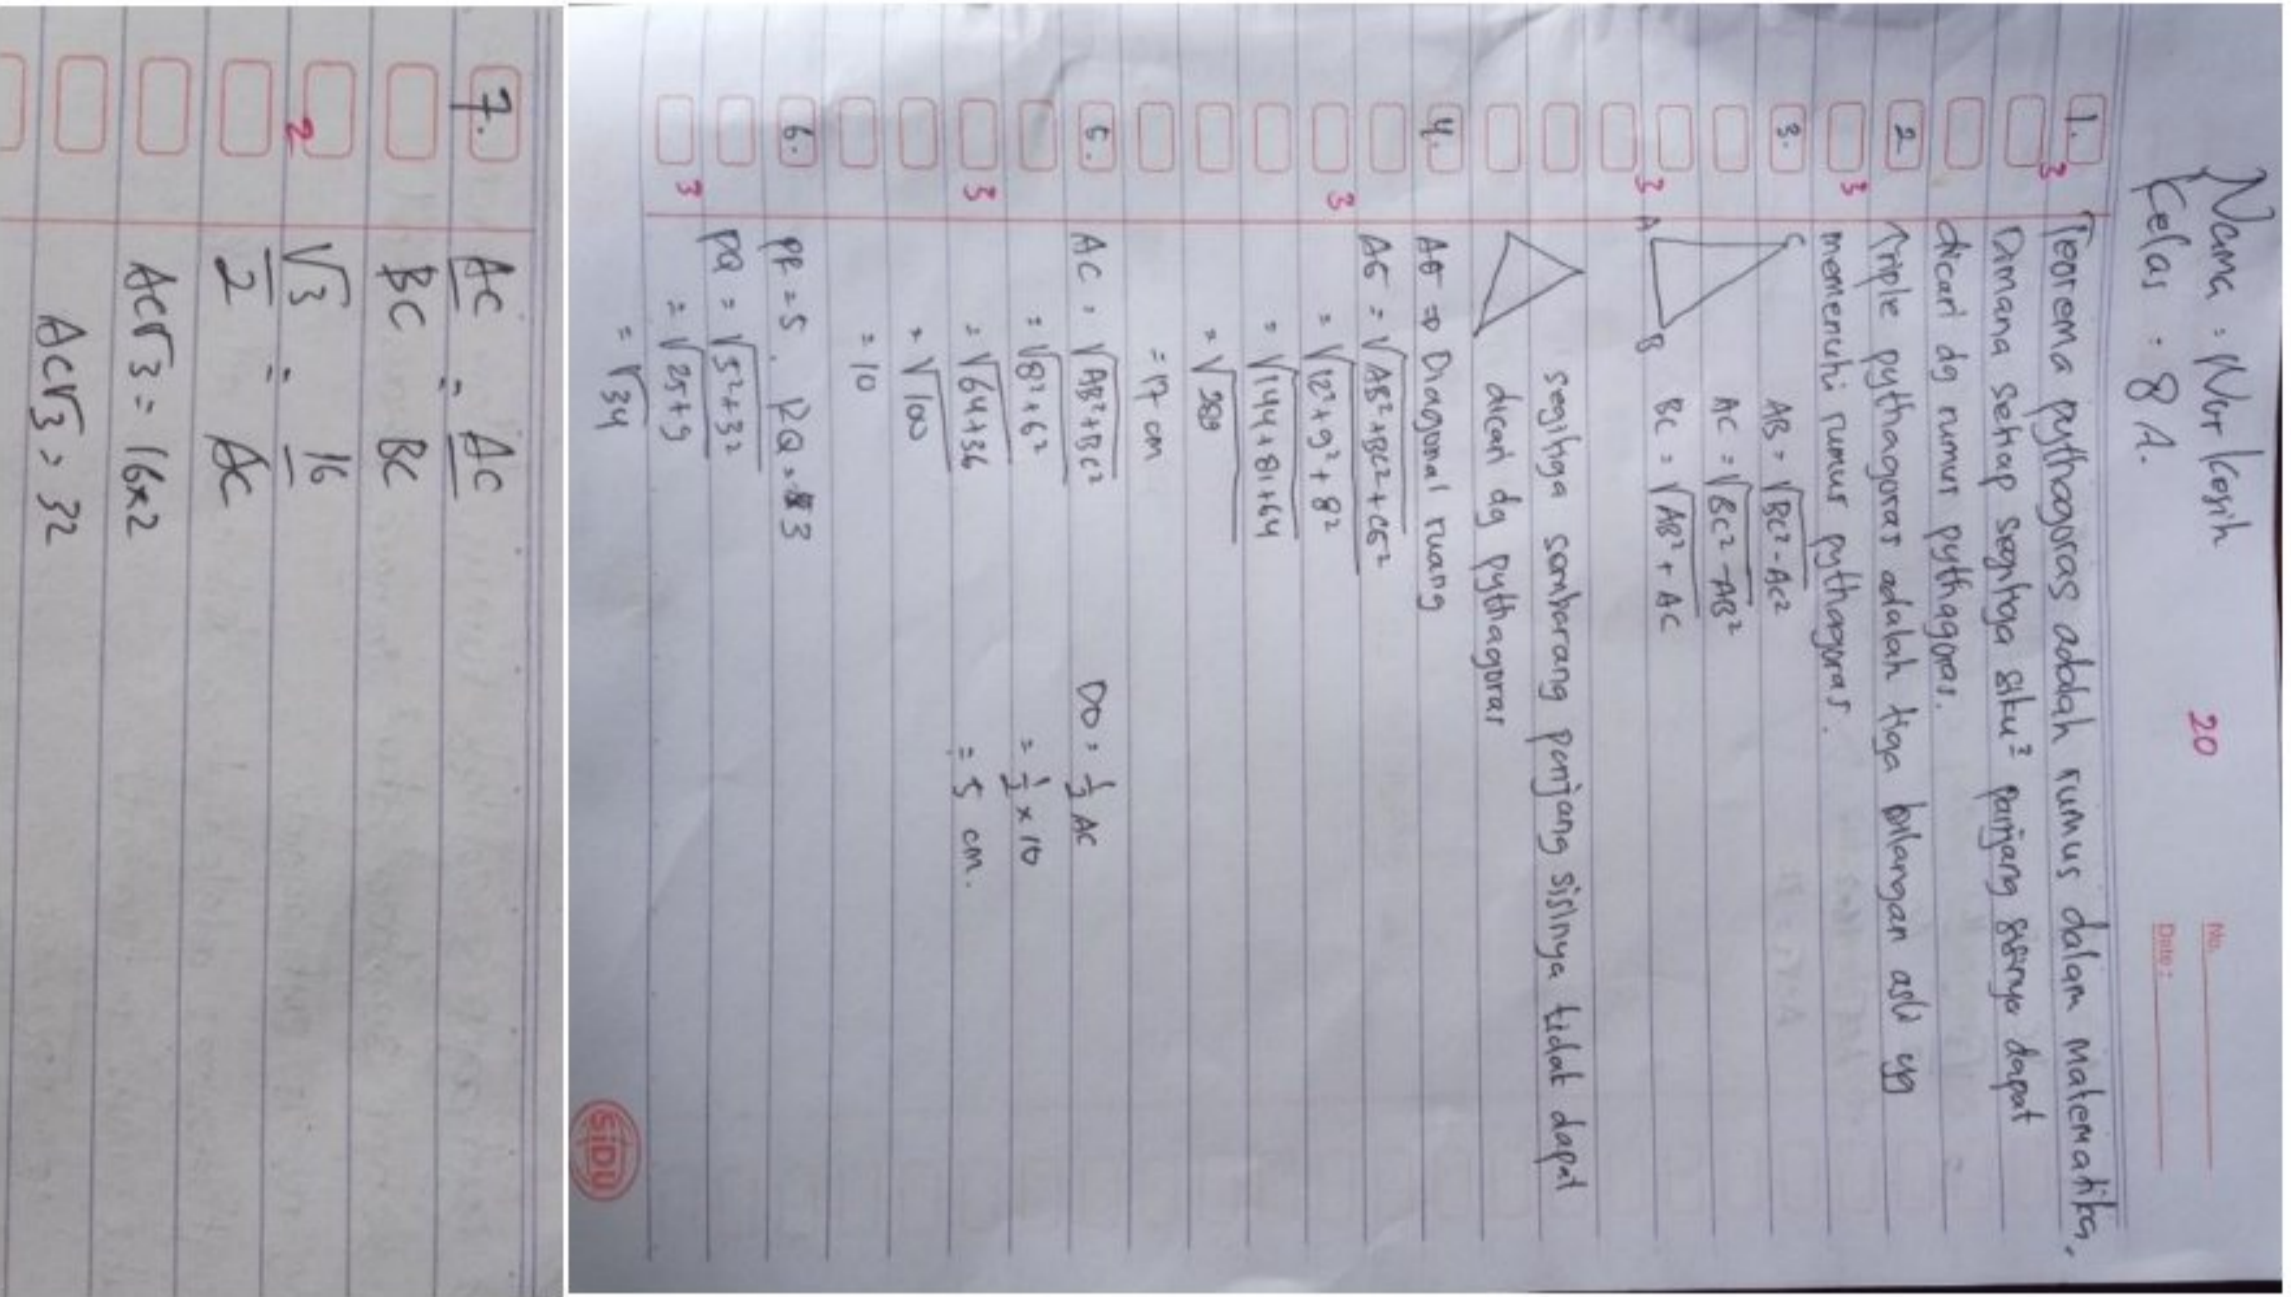 Nama : Nur Kosih
Kelas : 8 A.
20
No.
Date :
1. Teorema pythagoras adalah rumus dalam matematika,
3
Dimana setiap segitiga siku² panjang sisinya dapat
dicari dg rumus pythagoras.
2 Triple pythagoras adalah tiga bilangan asli yg
3 memenuhi rumus pythagoras.
3. C AB = √BC² - AC²
AC = √BC² - AB²
3 A B BC = √AB² + AC
segitiga sembarang panjang sisinya tidak dapat
dicari dg pythagoras
4. AG ⇒ Diagonal ruang
AG = √AB² + BC² + CG²
3 = √12² + 9² + 8²
= √144 + 81 + 64
= √289
= 17 cm
5. AC = √AB² + BC² DO = ½ AC
= √8² + 6² = ½ x 10
3 = √64 + 36 = 5 cm.
= √100
= 10
6. PR = 5. RQ = 3
PQ = √5² + 3²
3 = √25 + 9
= √34
SIDU
7. AC = AC
BC BC
2 √3 = 16
2 AC
AC√3 = 16x2
AC√3 = 32